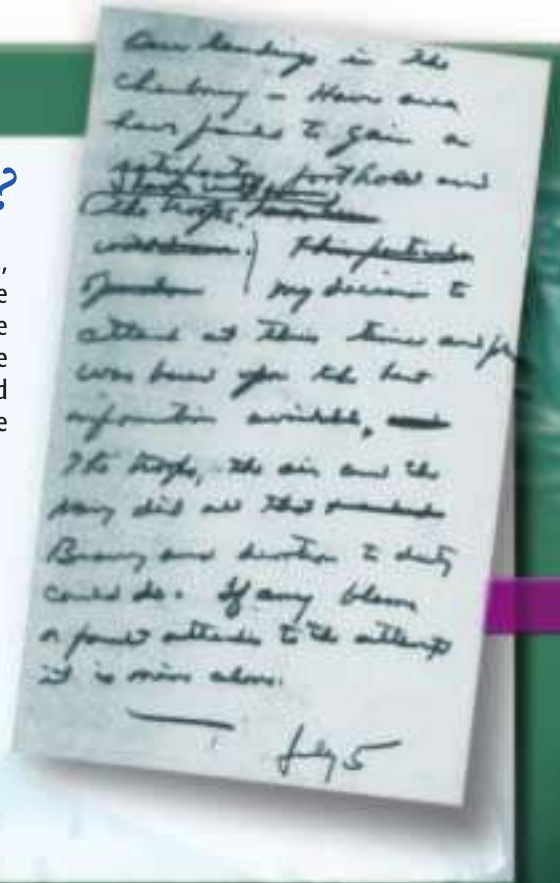 ?
,
e
e
e
d
e
Our landings in the
Cherbourg - Havre area
have failed to gain a
satisfactory foothold and
the troops
my decision to
attack at this time and place
was based upon the best
information available,
The troops, the air and the
Navy did all that
Bravery and devotion to duty
could do. If any blame
or fault attaches to the attempt
it is mine alone.
July 5